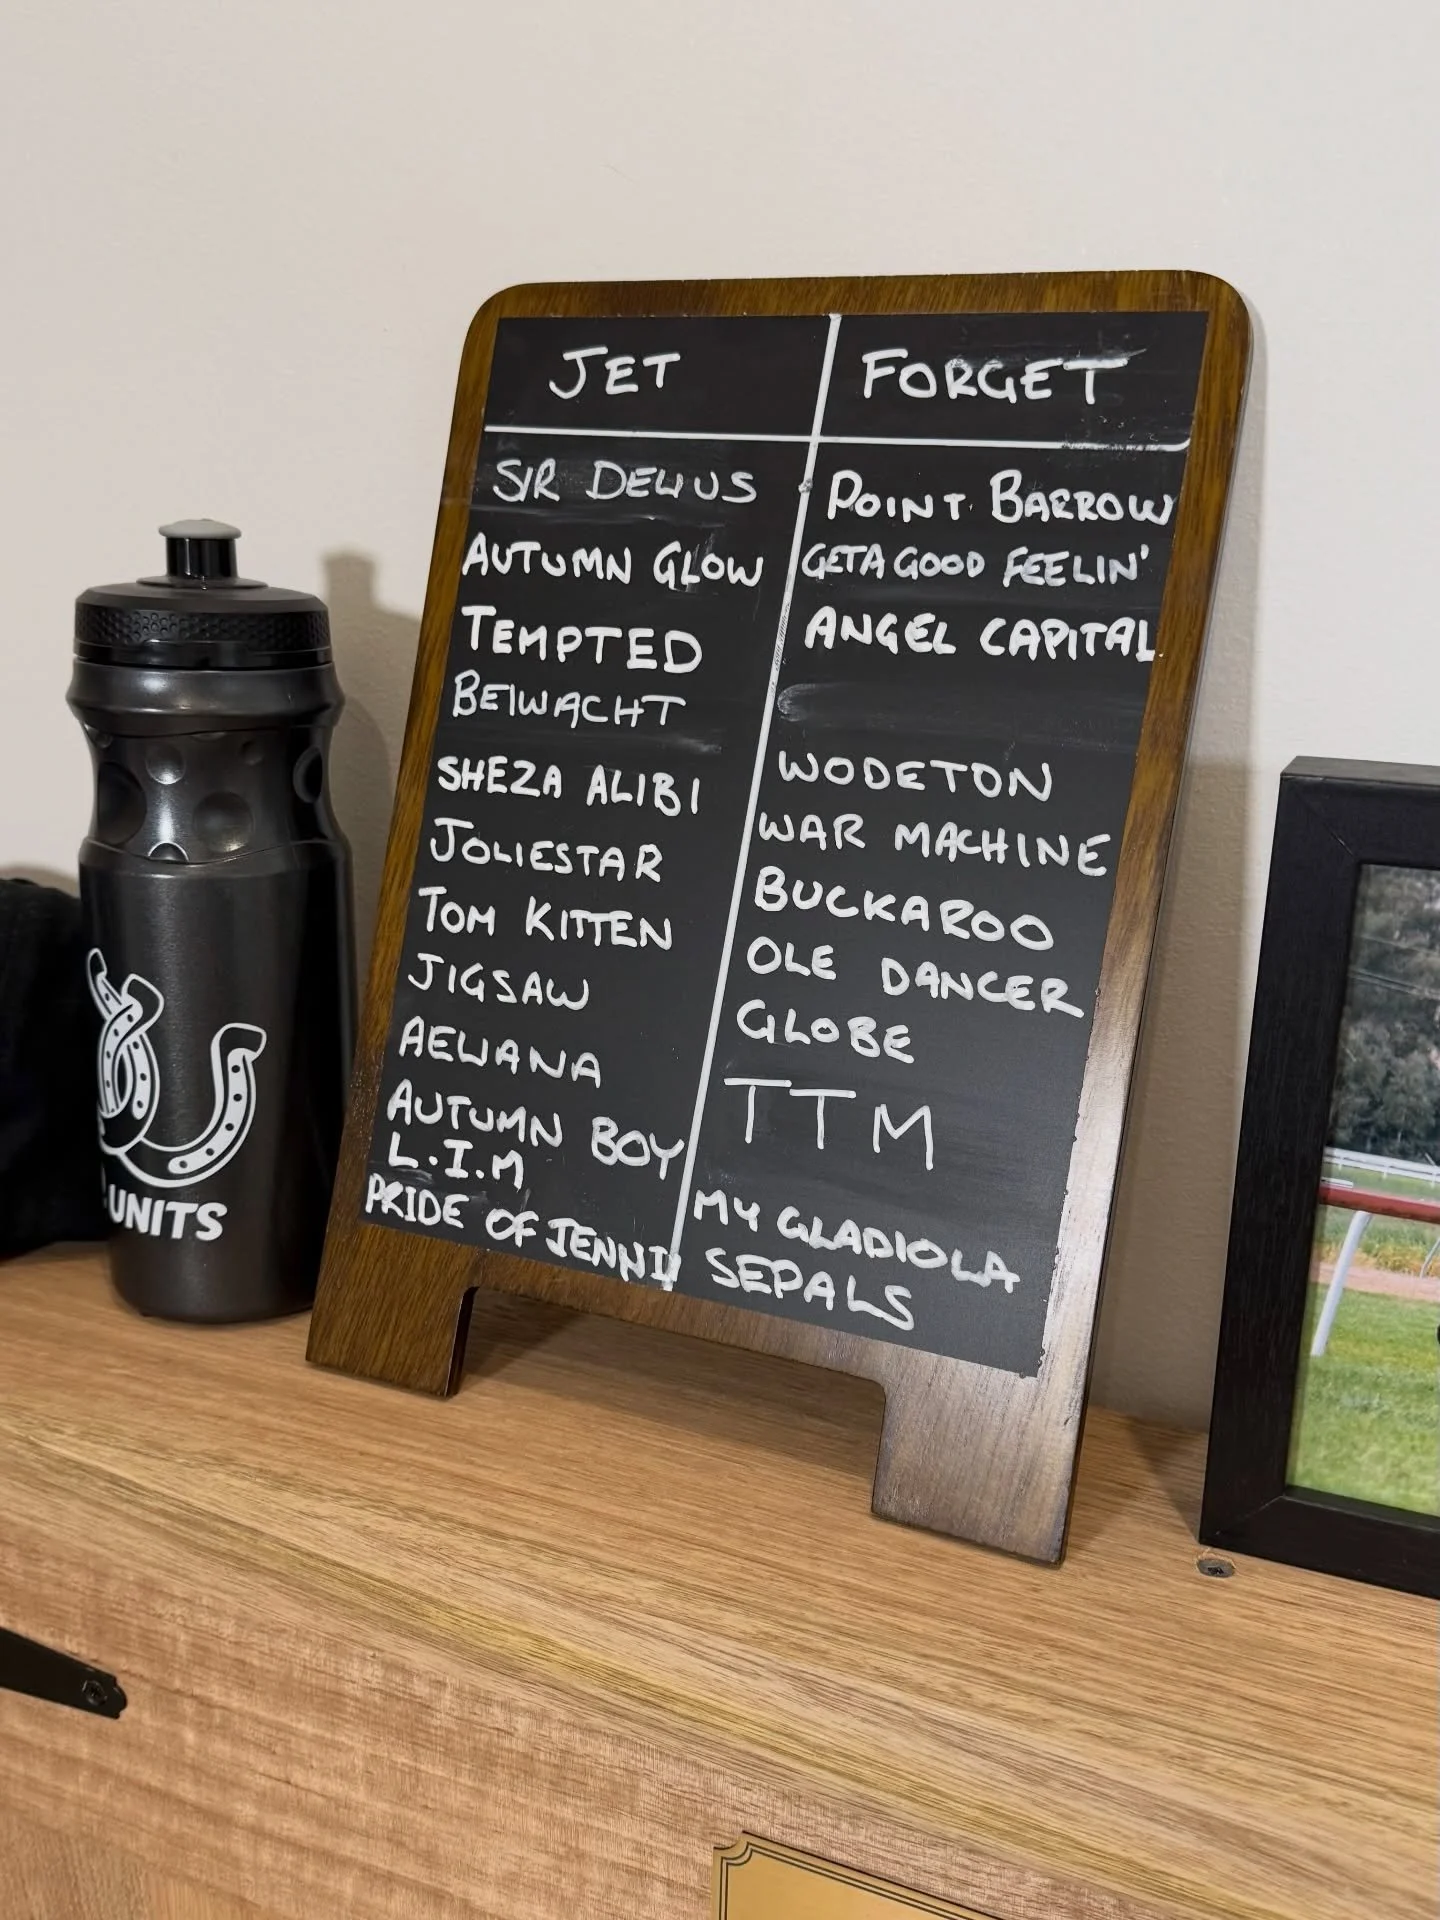 JET
SIR DELIUS
AUTUMN GLOW
TEMPTED
BEIWACHT
SHEZA ALIBI
JOLIESTAR
TOM KITTEN
JIGSAW
AELIANA
AUTUMN BOY
L.I.M
PRIDE OF JENNI
FORGET
POINT BARROW
GETA GOOD FEELIN'
ANGEL CAPITAL
WODETON
WAR MACHINE
BUCKAROO
OLE DANCER
GLOBE
TTM
MY GLADIOLA
SEPALS
UNITS